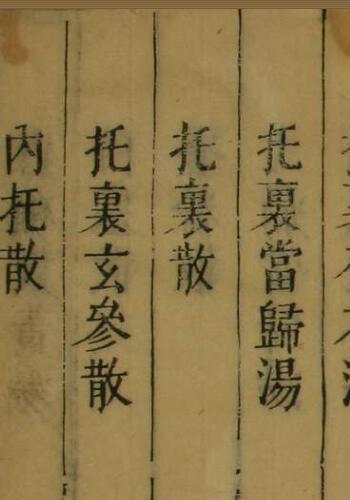 托裏當歸湯
托裏散
托裏玄參散
內托散